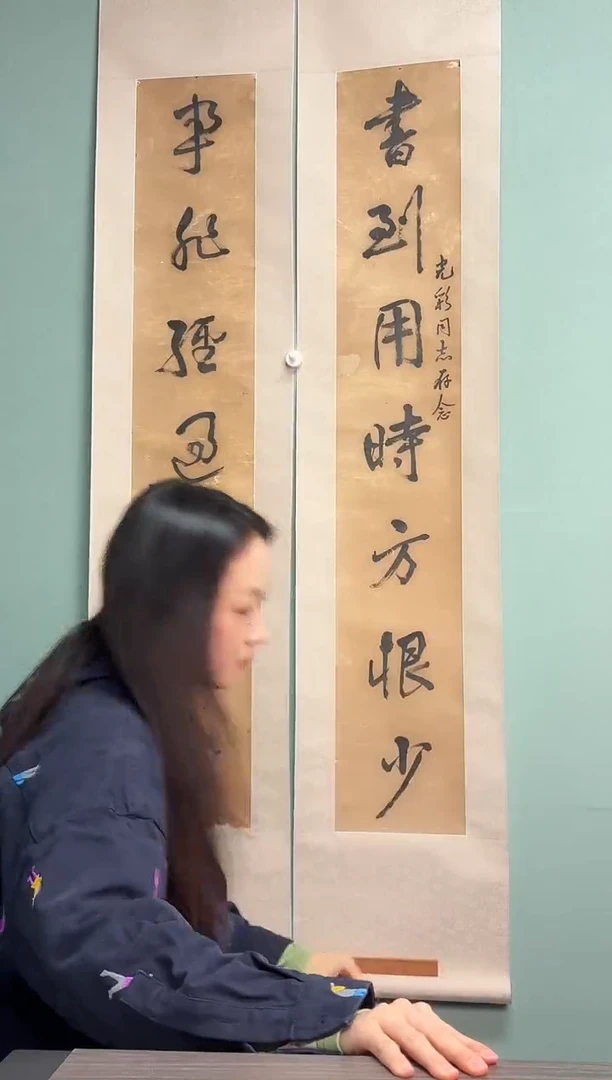 書到用時方恨少
光彩同志存念
事非經過